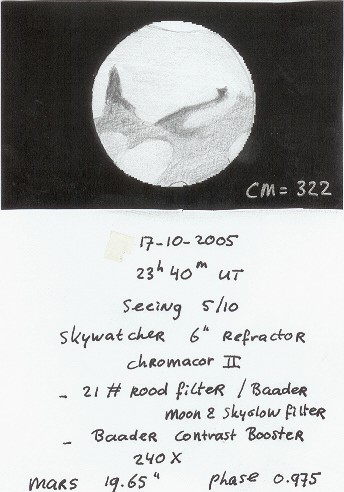 CM = 322
17-10-2005
23h 40m UT
Seeing 5/10
Skywatcher 6" Refractor
Chromacor II
- 21 # rood filter / Baader
Moon & Skyglow filter
- Baader Contrast Booster
240 X
Mars 19.65" phase 0.975